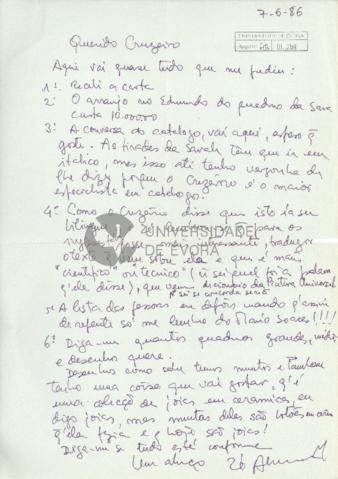 7-6-86
UNIVERSIDADE DE ÉVORA
Querido Cruzeiro
Aqui vai quase tudo que me pediu:
1º. Recebi a carta
2º O arranjo no Edmundo do quadro da Sara
custa 10.000$00
3º A conversa do catalogo, vai aqui, espero q̃
goste. As tiradas da Sarah têm que ir em
itálico, mas isso até tenho vergonha de
lhe dizer porque o Cruzeiro é o maior
especialista em catalogos.
4º Como o Cruzeiro disse que isto ia ser
UNIVERSIDADE
DE ÉVORA
interessante, traduzir
o texto
é mais
"cientifico" ou "tecnico" (
foi a palavra
q'ele disse), que vem dicionario da Pintura Universal
5º A lista das pessoas eu depois mando q'assim
de repente só me lembro do Mario Soares!!!!
6º Diga-me quantos quadros grandes, médios
e desenhos quere.
Desenhos como sabe temos muitos e também
tenho uma coisa que vai gostar, q'é
uma colecção de joias em ceramica, eu
digo joias, mas muitas delas são botões em ceram
q'ela fazia e q'hoje são joias!
Diga-me se tudo está conforme
Um abraço Zé